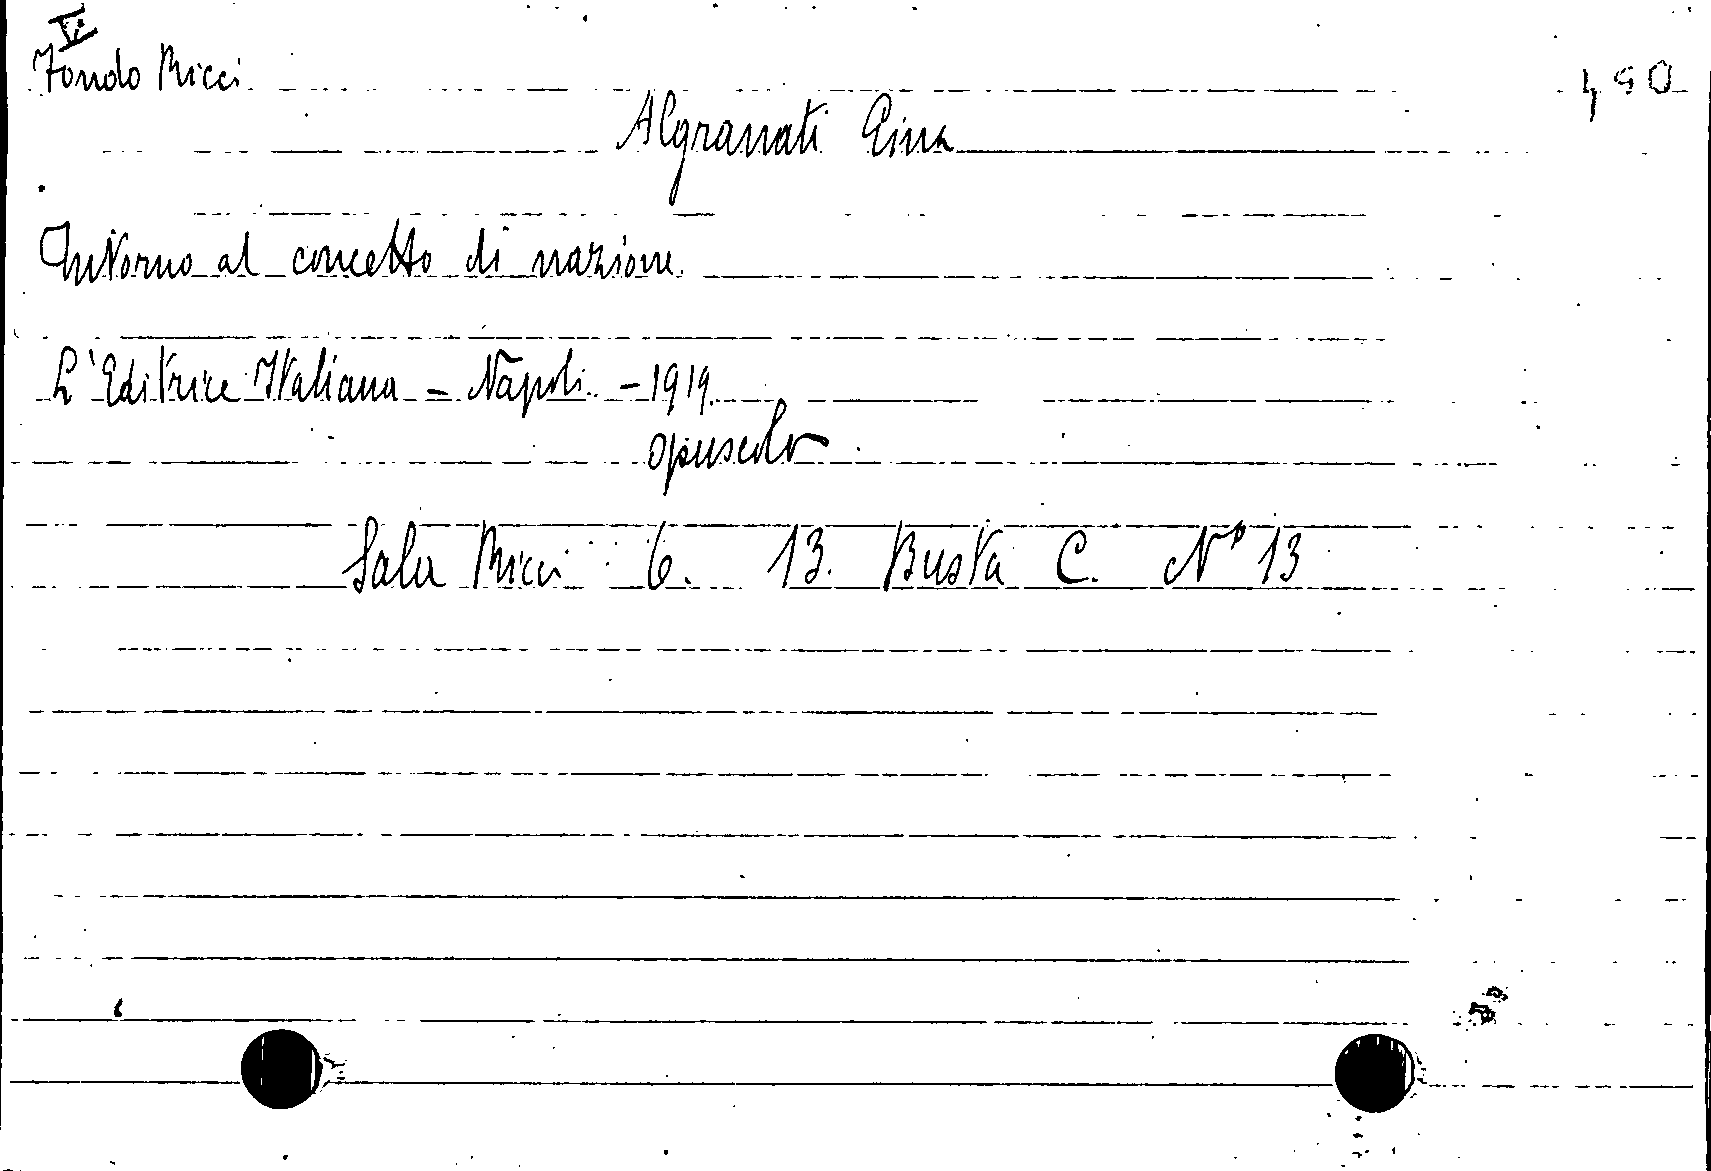 VI
Fondo Ricci
490
Algranati Gina
Intorno al concetto di nazione.
L'Editrice Italiana - Napoli - 1919.
opuscolo.
Sala Ricci 6. 13. Busta C. N° 13